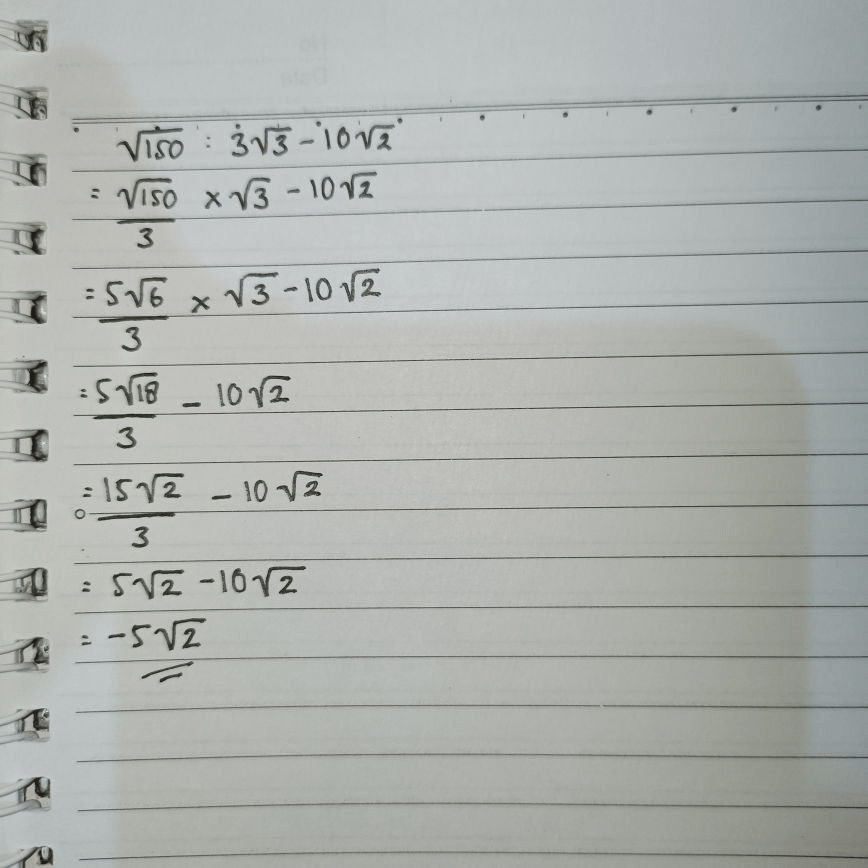 √150 : 3√3 - 10√2
= √150/3 × √3 - 10√2
= 5√6/3 × √3 - 10√2
= 5√18/3 - 10√2
= 15√2/3 - 10√2
= 5√2 - 10√2
= -5√2